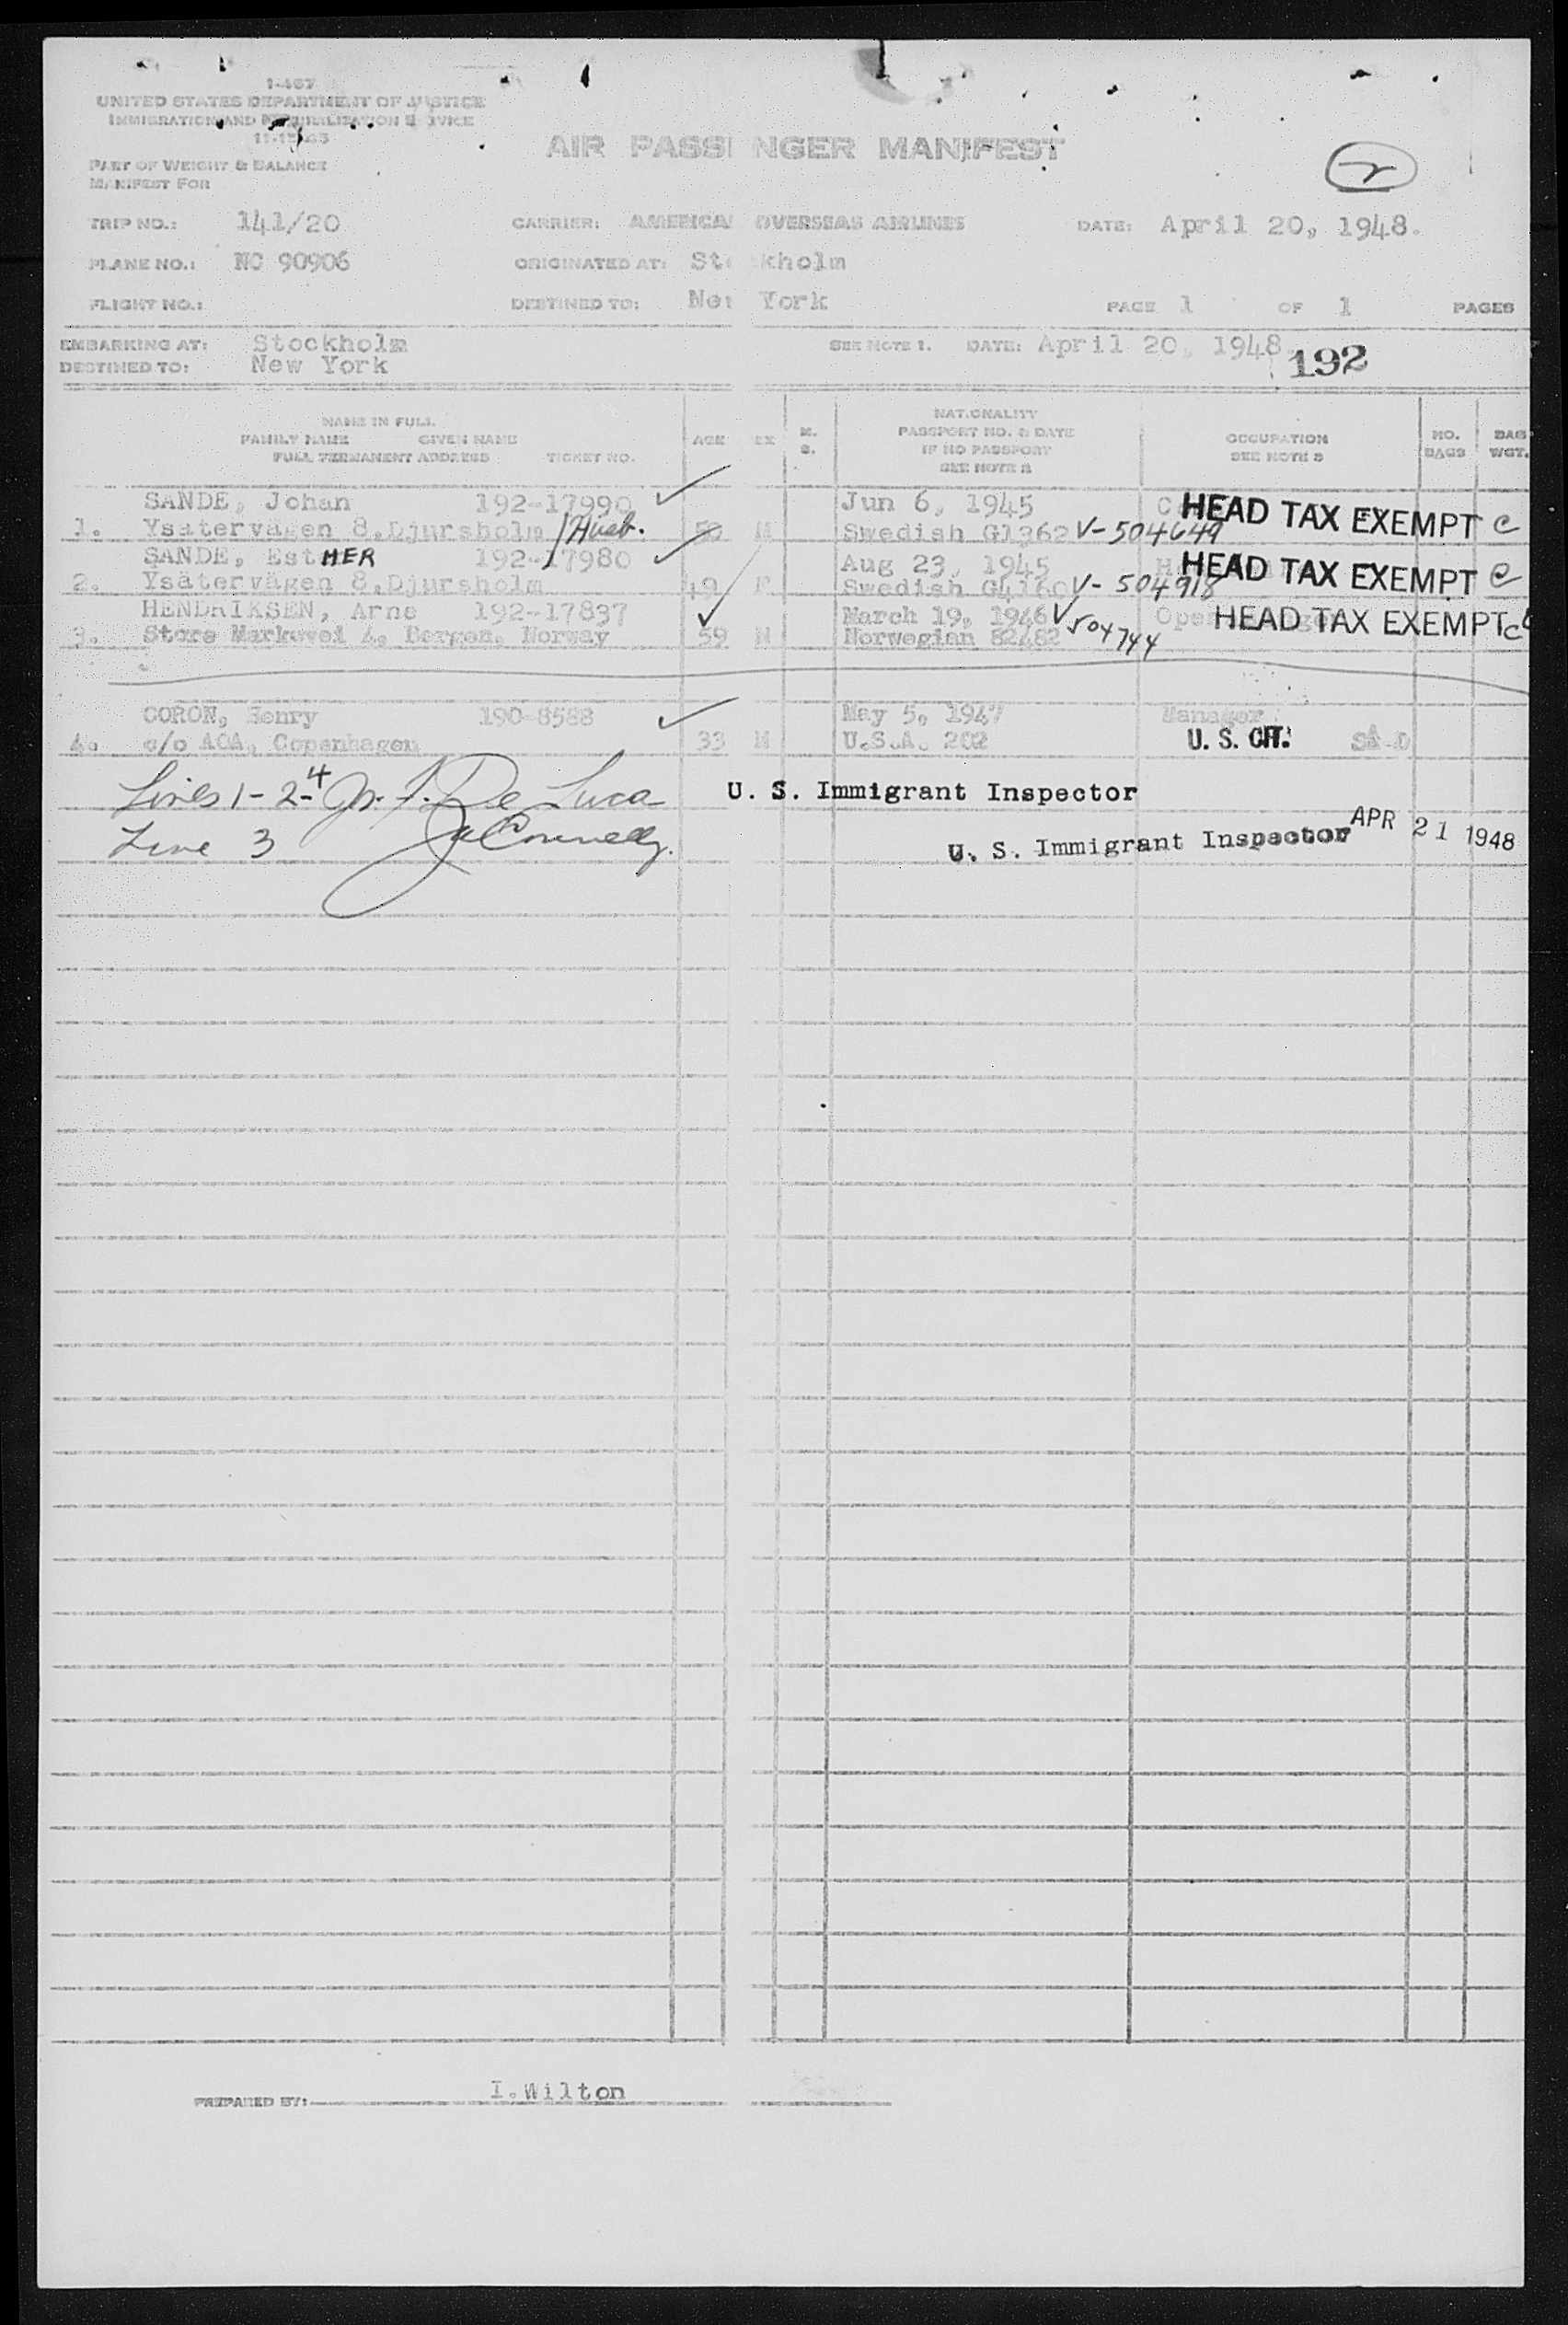 I-467
UNITED STATES DEPARTMENT OF JUSTICE
IMMIGRATION AND NATURALIZATION SERVICE
AIR PASSENGER MANIFEST
PART OF WEIGHT & BALANCE
MANIFEST FOR
TRIP NO.: 141/20 CARRIER: AMERICAN OVERSEAS AIRLINES DATE: April 20, 1948.
PLANE NO.: NC 90906 ORIGINATED AT: Stockholm
FLIGHT NO.: DESTINED TO: New York PAGE 1 OF 1 PAGES
EMBARKING AT: Stockholm SEE NOTE 1. DATE: April 20, 1948
DESTINED TO: New York 192
NAME IN FULL
FAMILY NAME GIVEN NAME
FULL PERMANENT ADDRESS TICKET NO. AGE SEX M. S. NATIONALITY PASSPORT NO. & DATE IF NO PASSPORT SEE NOTE 2 OCCUPATION SEE NOTE 3 NO. BAGS BAG WGT.
SANDE, Johan 192-17990 Jun 6, 1945 HEAD TAX EXEMPT
1. Ysätervägen 8, Djursholm /Husb. 50 M Swedish G1362 V-504649
SANDE, EstHER 192-17980 Aug 23, 1945 HEAD TAX EXEMPT
2. Ysätervägen 8, Djursholm 49 F Swedish G4760 V-504918
HENDRIKSEN, Arne 192-17837 March 19, 1946 V504744 HEAD TAX EXEMPT
3. Store Markevei 4, Bergen, Norway 59 M Norwegian 82482
CORON, Henry 190-8588 May 5, 1947 Manager
4. c/o AOA, Copenhagen 33 M U.S.A. 202 U. S. CIT.
Lines 1-2-4 De Luca U. S. Immigrant Inspector
Line 3 Connelly U. S. Immigrant Inspector APR 21 1948
PREPARED BY: I.Wilton